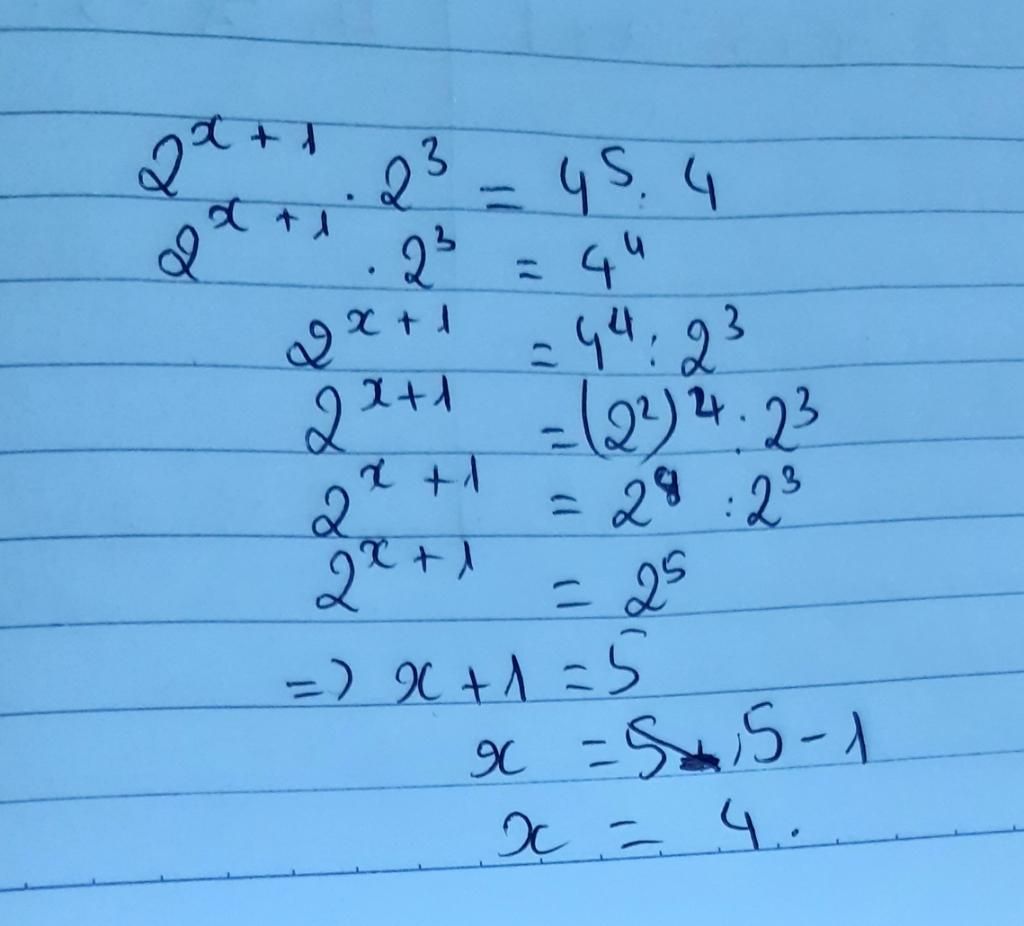 2^{x+1} . 2^3 = 4^5 : 4
2^{x+1} . 2^3 = 4^4
2^{x+1} = 4^4 : 2^3
2^{x+1} = (2^2)^4 : 2^3
2^{x+1} = 2^8 : 2^3
2^{x+1} = 2^5
=> x + 1 = 5
x = 5 - 1
x = 4.